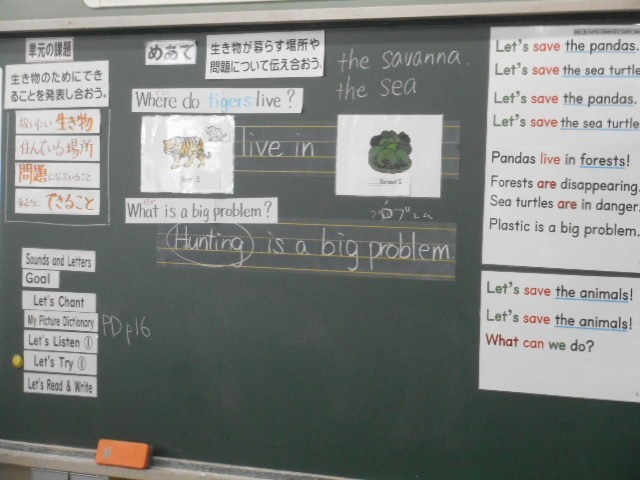 単元の課題
生き物のためにでき
ることを発表し合おう。
救いたい 生き物
住んでいる 場所
問題になっていること
できること
めあて
生き物が暮らす場所や
問題について伝え合おう。
the savanna
the sea
Where do tigers live?
live in
What is a big problem?
プロブレム
Hunting is a big problem.
Sounds and Letters
Goal
Let's Chant
My Picture Dictionary
PD p16
Let's Listen ①
Let's Try ①
Let's Read & Write
Let's save the pandas.
Let's save the sea turtle
Let's save the pandas.
Let's save the sea turtle
Pandas live in forests!
Forests are disappearing.
Sea turtles are in danger.
Plastic is a big problem.
Let's save the animals!
Let's save the animals!
What can we do?